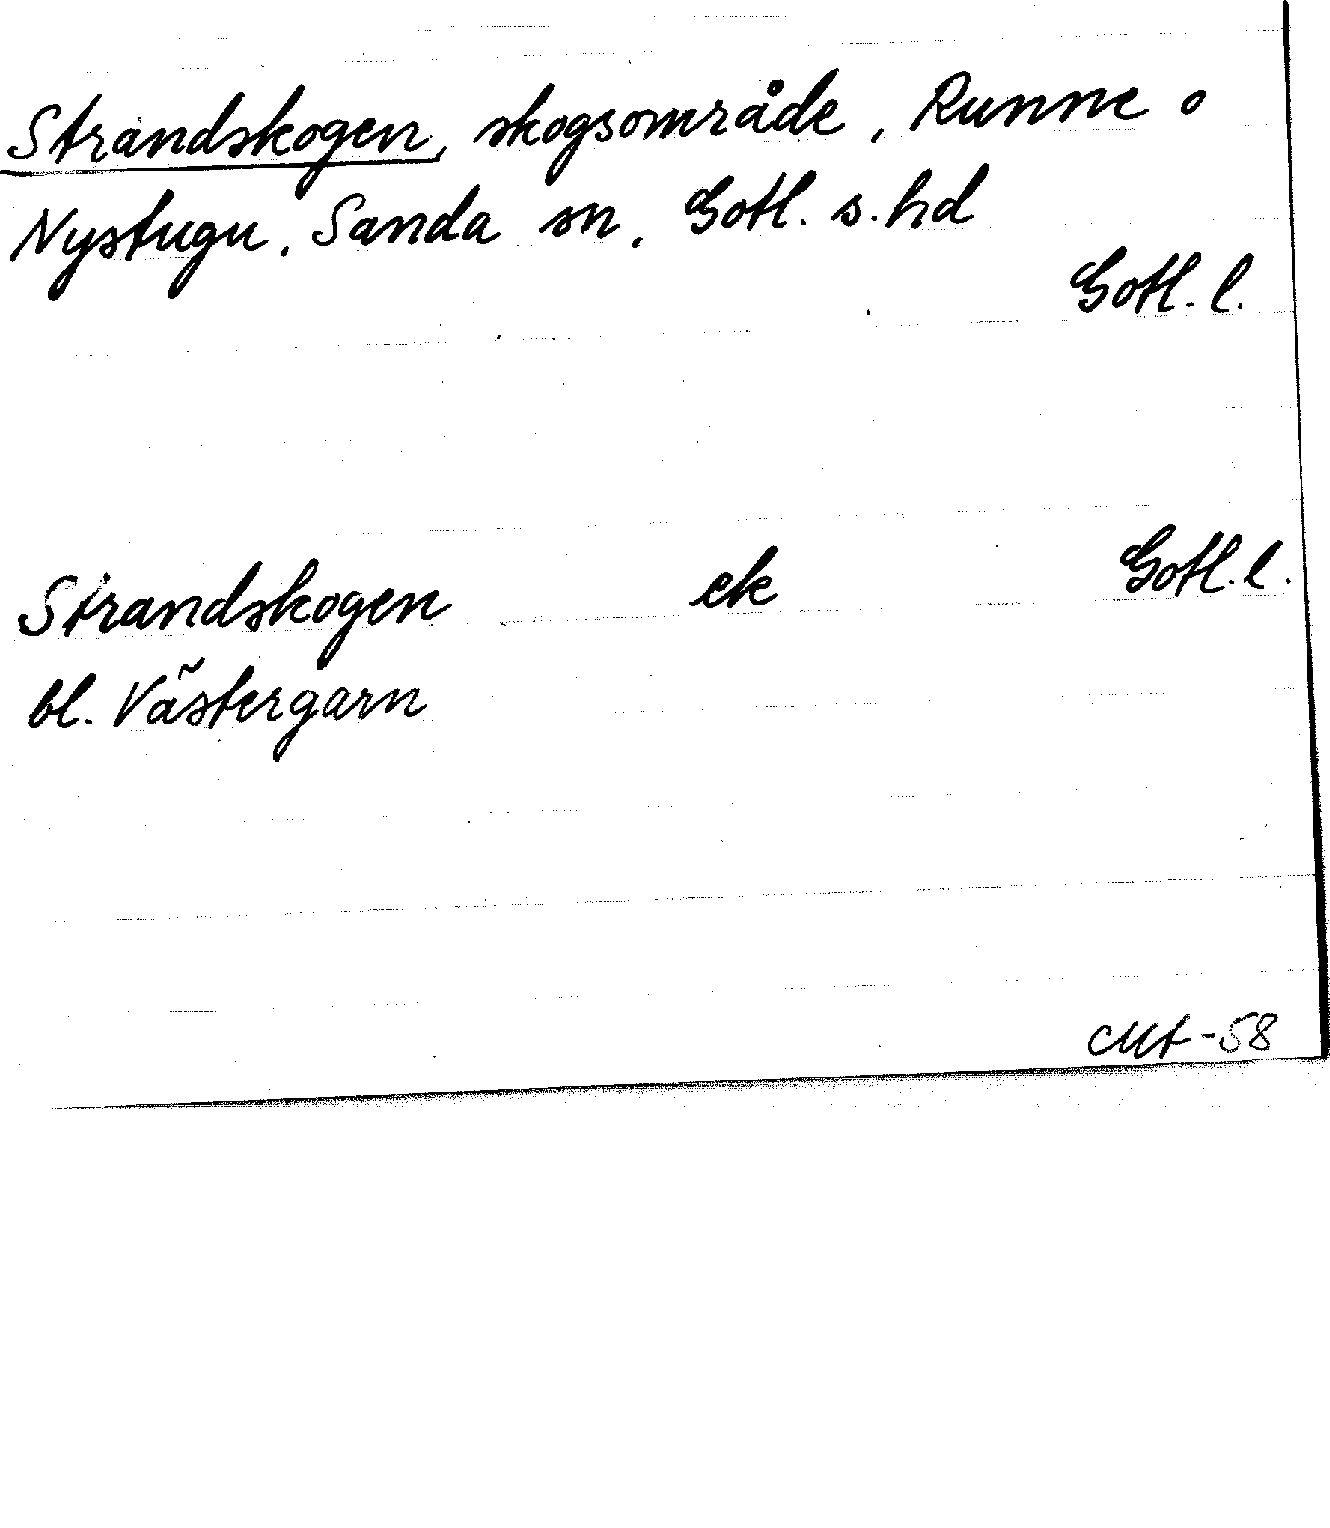 Strandskogen, skogsområde, Runne o
Nystugu, Sanda sn, Gotl. s. hd
Gotl. l.
Strandskogen ek Gotl. l.
bl. Västergarn
-58